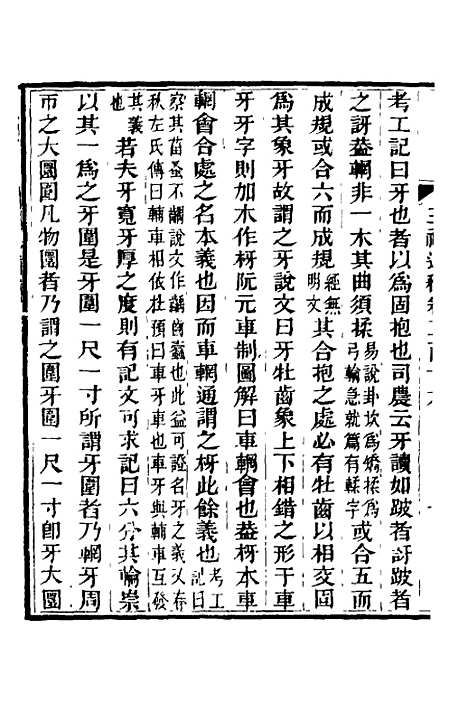 考工記曰牙也者以爲固抱也司農云牙讀如跛者訝跛者
之訝葢輞非一木其曲須揉易說卦坎爲矯揉爲弓輪急就篇有輮字或合五而
成規或合六而成規經無明文其合抱之處必有牡齒以相交固
爲其象牙故謂之牙說文曰牙牡齒象上下相錯之形于車
牙牙字則加木作枒阮元車制圖解曰車輞會也葢枒本車
輞會合處之名本義也因而車輞通謂之枒此餘義也考工記曰
察其菑蚤不齵說文作齵齒蠹也此益可證名牙之義又春秋左氏傳曰輔車相依杜預曰車牙車也車牙與輔車互發
其義也若夫牙寬牙厚之度則有記文可求記曰六分其輪崇
以其一爲之牙圍是牙圍一尺一寸所謂牙圍者乃輞牙周
帀之大圜圍凡物圜者乃謂之圍牙圍一尺一寸卽牙大圜